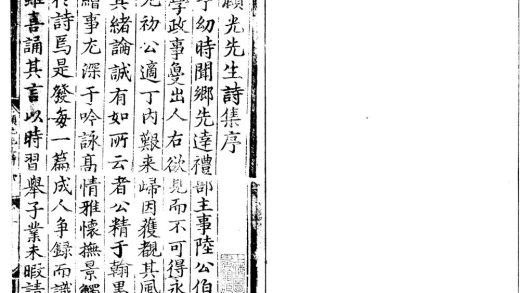 頤光先生詩集序
予幼時聞鄉先達禮部主事陸公伯
學政事敻出人右欲見而不可得永
初公適丁内艱来歸因獲觀其風
其緒論誠有如所云者公精于翰墨
繪事尤深于吟詠髙情雅懷撫景觸
於詩焉是發每一篇成人争録而識
雖喜誦其言以時習舉子業未暇請